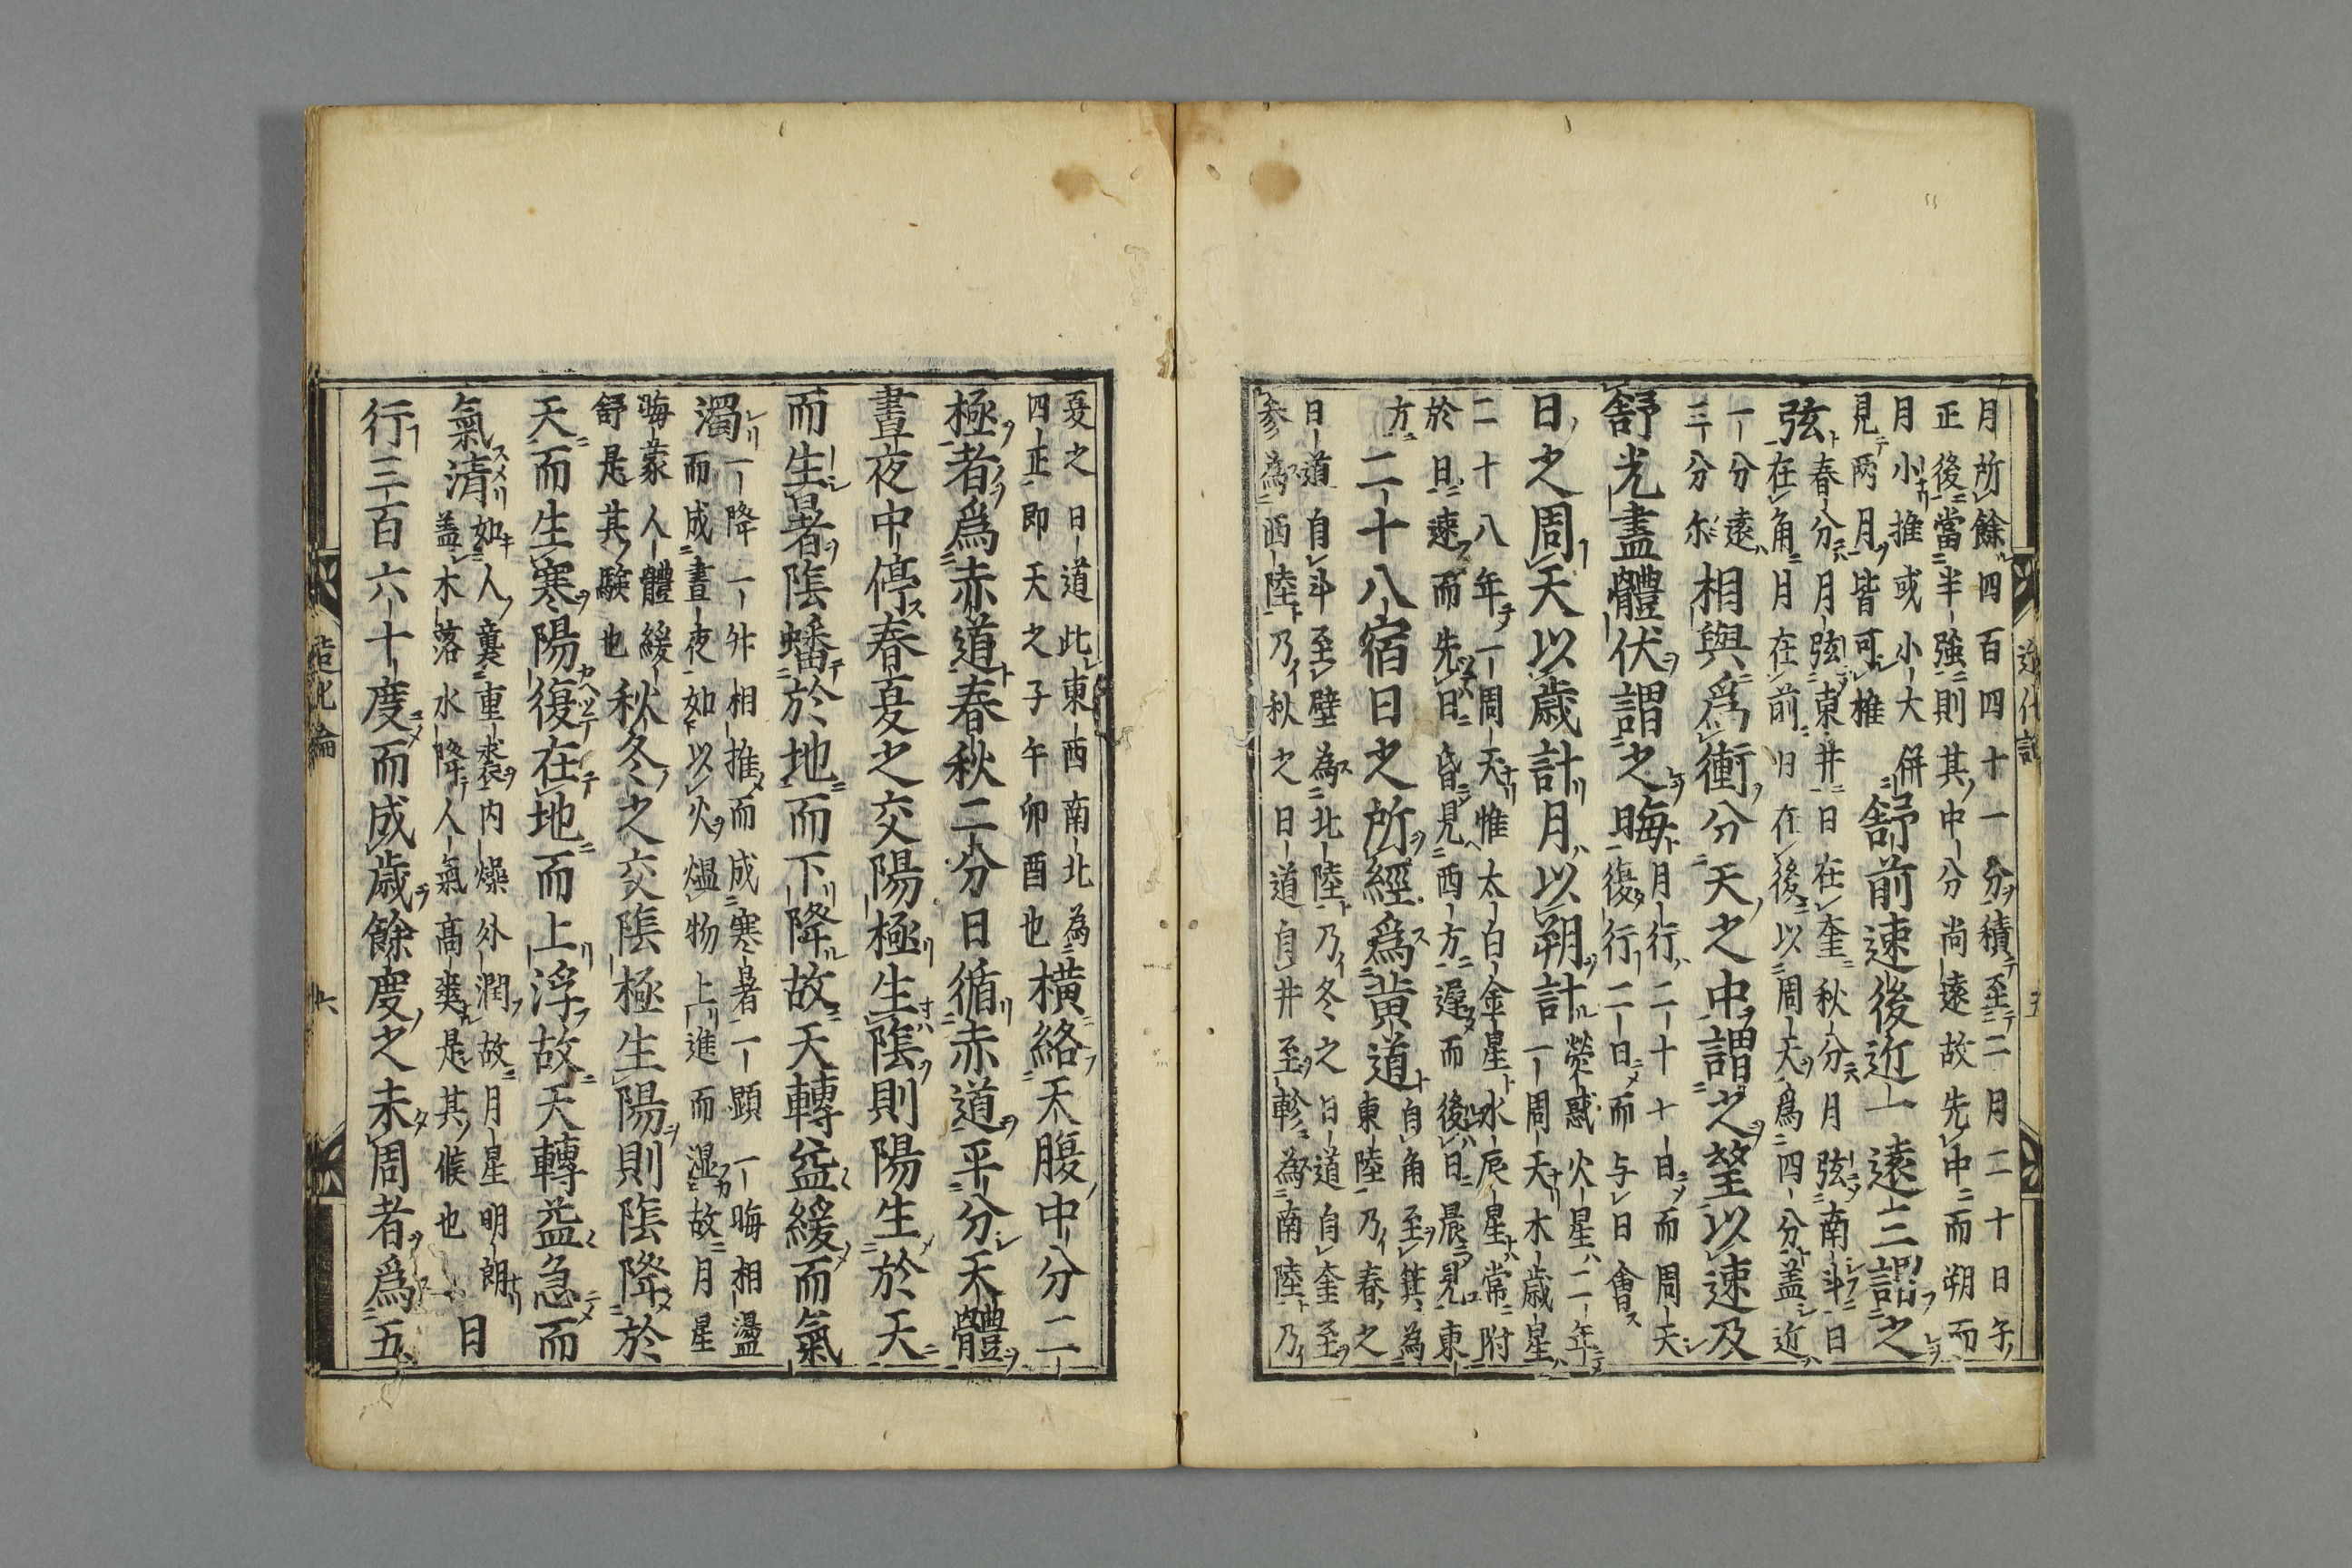 月所餘四百四十一分積至二月二十日午
正後當半強則其中分尚遠故先中而朔而
月小推或小大併
見兩月皆可推
舒前速後近一遠三謂之
弦
春分月弦東井日在奎秋分月弦南斗日
在角月在前日在後以周天爲四分盖近
一分遠
三分尓
相與爲衝分天之中謂之望以速及
舒光盡體伏謂之晦
月行二十七日而周天
復行二日而与日會
日之周天以歲計月以朔計
熒惑火星二年
一周天木歲星
二十八年一周天惟太白金星水辰星常附
於日速而先日昏見西方遲而後日晨見東
方
二十八宿日之所經爲黄道
自角至箕為
東陸乃春之
日道自斗至壁為北陸乃冬之日道自奎至
參為西陸乃秋之日道自井至軫為南陸乃
夏之日道此東西南北為
四正即天之子午卯酉也
橫絡天腹中分二
極者爲赤道春秋二分日循赤道平分天體
晝夜中停春夏之交陽極生陰則陽生於天
而生暑陰蟠於地而下降故天轉益緩而氣
濁
一降一升相推而成寒暑一顯一晦相盪
而成晝夜如以火煴物上進而濕故月星
晦蒙人體緩
舒是其驗也
秋冬之交陰極生陽則陰降於
天而生寒陽復在地而上浮故天轉益急而
氣清
如人囊重裘内燥外潤故月星明朗
盖木落水降人氣高爽是其候也
日
行三百六十度而成歲餘度之未周者爲五
造化論
六
五